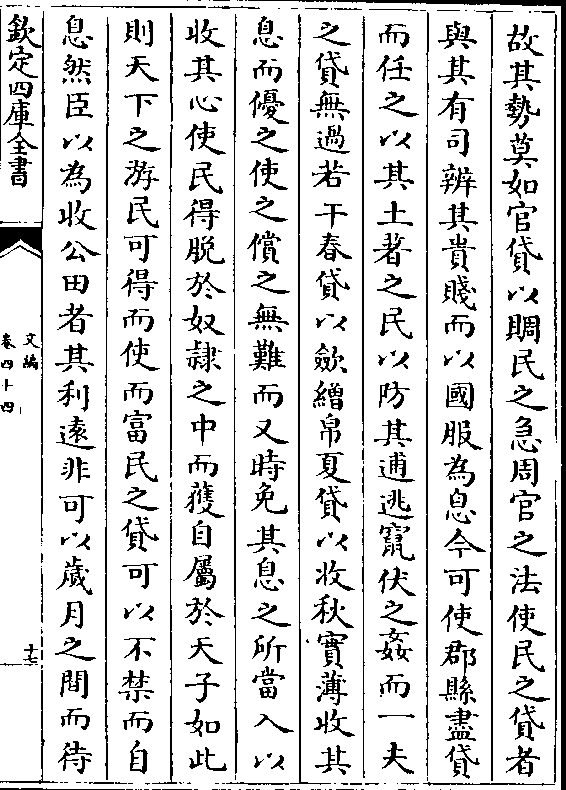 故其勢莫如官貸以賙民之急周官之法使民之貸者
與其有司辨其貴賤而以國服為息今可使郡縣盡貸
而任之以其土著之民以防其逋逃竄伏之姦而一夫
之貸無過若干春貸以歛繒帛夏貸以收秋實薄收其
息而優之使之償之無難而又時免其息之所當入以
收其心使民得脱於奴隷之中而獲自屬於天子如此
則天下之游民可得而使而富民之貸可以不禁而自
息然臣以為收公田者其利遠非可以歲月之間而待
欽定四庫全書
文編
卷四十四
十七